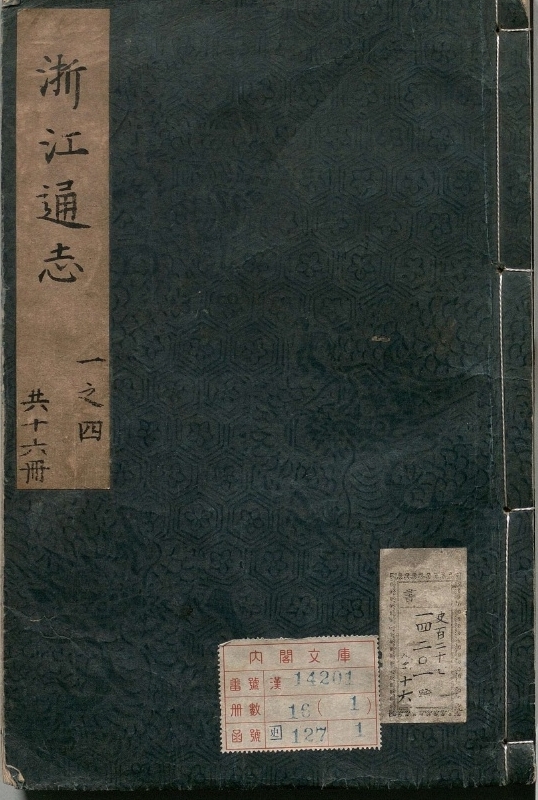 浙江通志
一之四
共十六冊
內閣文庫
番號 漢 14201
冊數 16 ( 1 )
函號 127 1
書
一四二〇一
十六